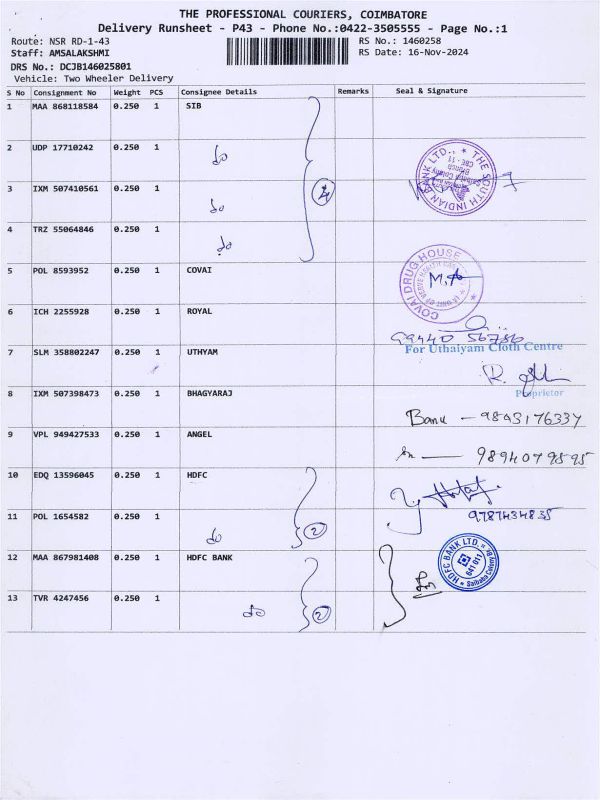 THE PROFESSIONAL COURIERS, COIMBATORE
Delivery Runsheet - P43 - Phone No.:0422-3505555 - Page No.:1
Route: NSR RD-1-43 RS No.: 1460258
Staff: AMSALAKSHMI RS Date: 16-Nov-2024
DRS No.: DCJB146025801
Vehicle: Two Wheeler Delivery
S No Consignment No Weight PCS Consignee Details Remarks Seal & Signature
1 MAA 868118584 0.250 1 SIB
2 UDP 17710242 0.250 1 do
THE SOUTH INDIAN BANK LTD.,
3 IXM 507410561 0.250 1 do 4
4 TRZ 55064846 0.250 1 do
5 POL 8593952 0.250 1 COVAI
COVAI DRUG HOUSE
6 ICH 2255928 0.250 1 ROYAL
99440 56786
7 SLM 358802247 0.250 1 UTHYAM
For Uthaiyam Cloth Centre
Proprietor
8 IXM 507398473 0.250 1 BHAGYARAJ
Banu - 9843176337
9 VPL 949427533 0.250 1 ANGEL
9894079595
10 EDQ 13596045 0.250 1 HDFC
11 POL 1654582 0.250 1 do 2
9787434835
12 MAA 867981408 0.250 1 HDFC BANK
HDFC BANK LTD.
641 011
13 TVR 4247456 0.250 1 do 2